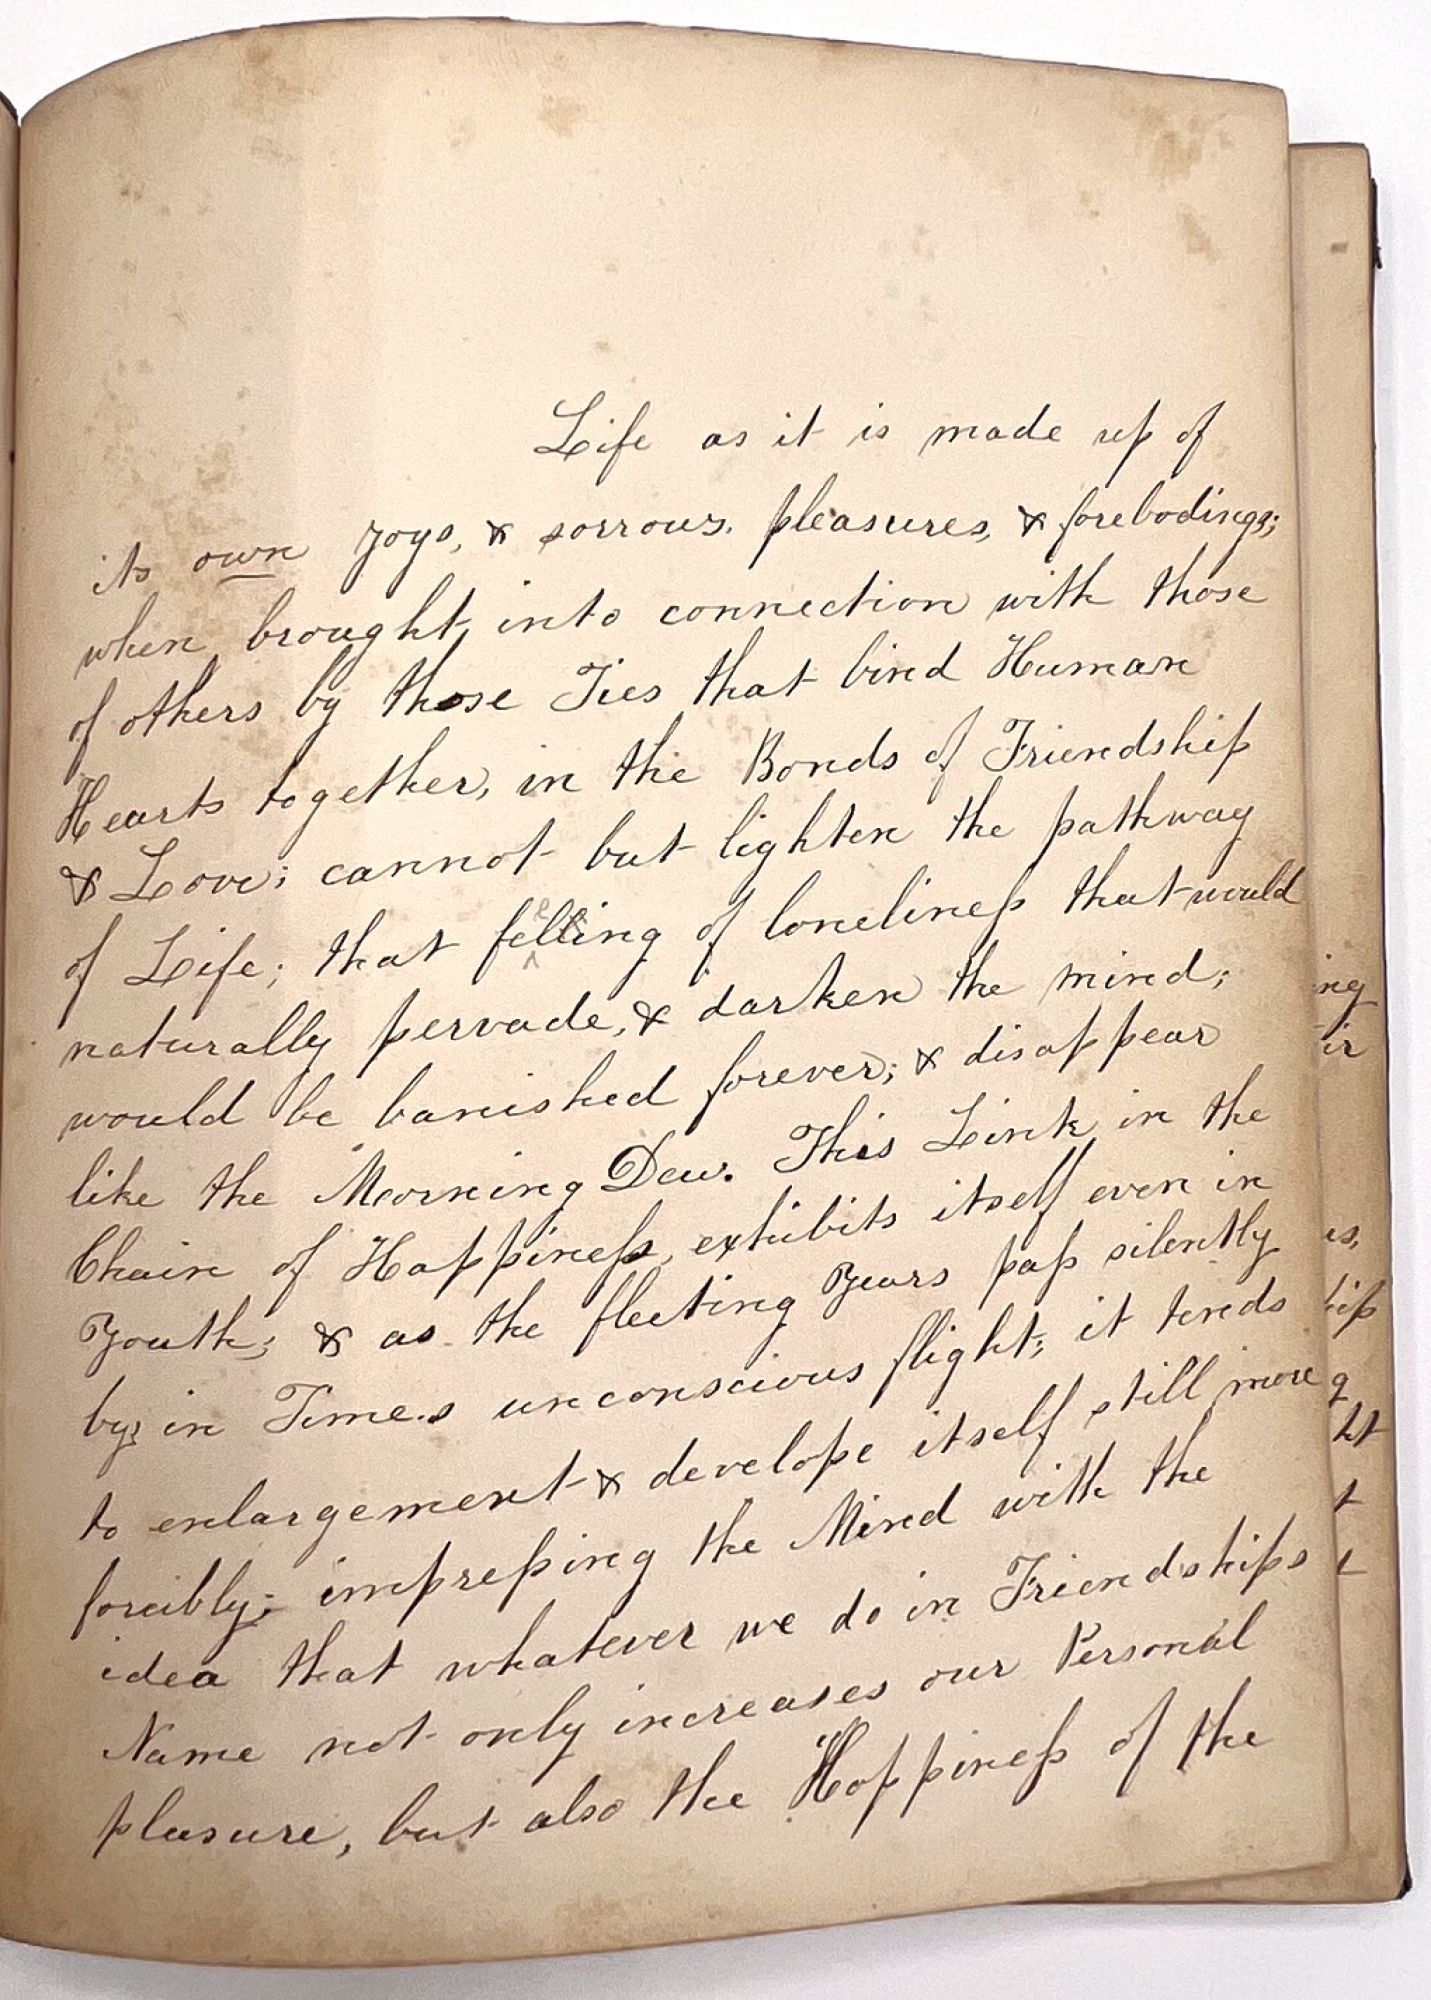 Life as it is made up of
its own joys, & sorrows. pleasures, & forebodings;
when brought, into connection with those
of others by those Ties that bind Human
Hearts together, in the Bonds of Friendship
& Love; cannot but lighten the pathway
of Life; that felling of loneliness that would
naturally pervade, & darken the mind;
would be banished forever; & disappear
like the Morning Dew. This Link in the
Chain of Happiness, exhibits itself even in
Youth; & as the fleeting years pass silently
by; in Time.s unconscious flight; it tends
to enlargement & develope itself still more
forcibly; impressing the Mind with the
idea that whatever we do in Friendships
Name not only increases our Personal
pleasure, but also the Happiness of the